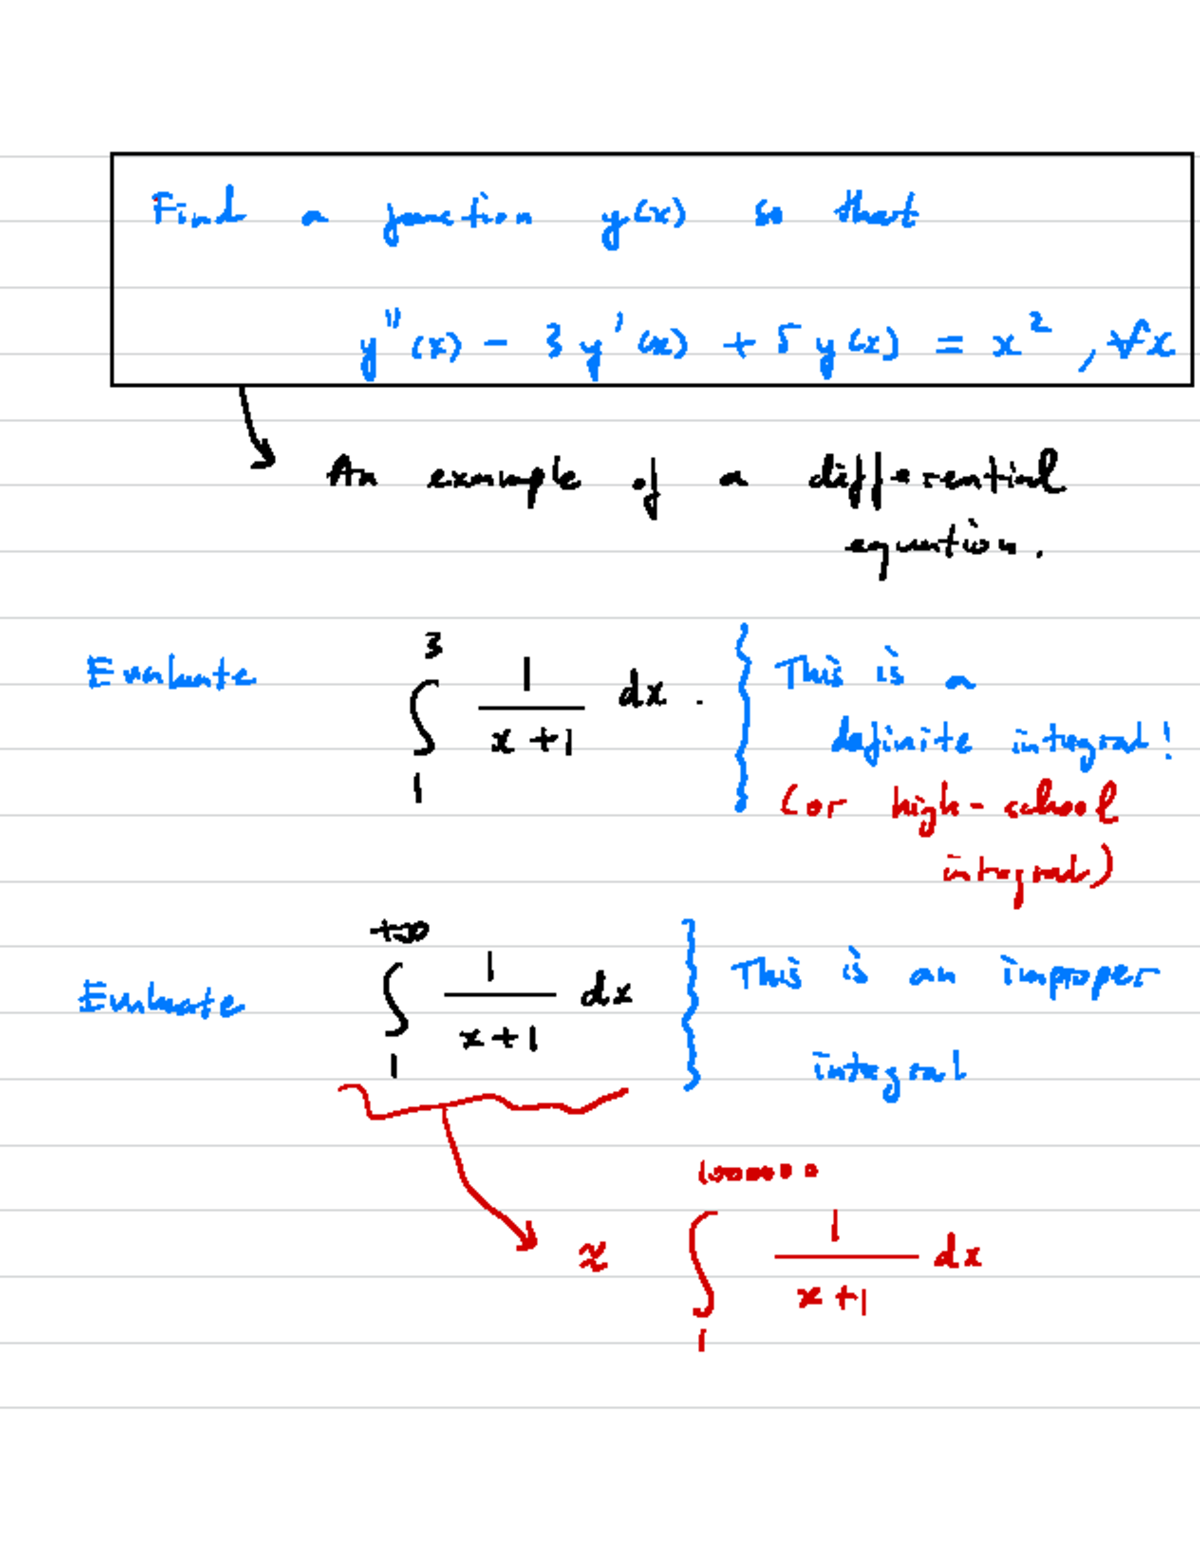 Find a function y(x) so that
y''(x) - 3y'(x) + 5y(x) = x², ∀x
An example of a differential
equation.
Evaluate ∫₁³ 1/(x+1) dx. } This is a
definite integral!
(or high-school
integral)
Evaluate ∫₁^{+∞} 1/(x+1) dx } This is an improper
integral
≈ ∫₁^{1000000} 1/(x+1) dx